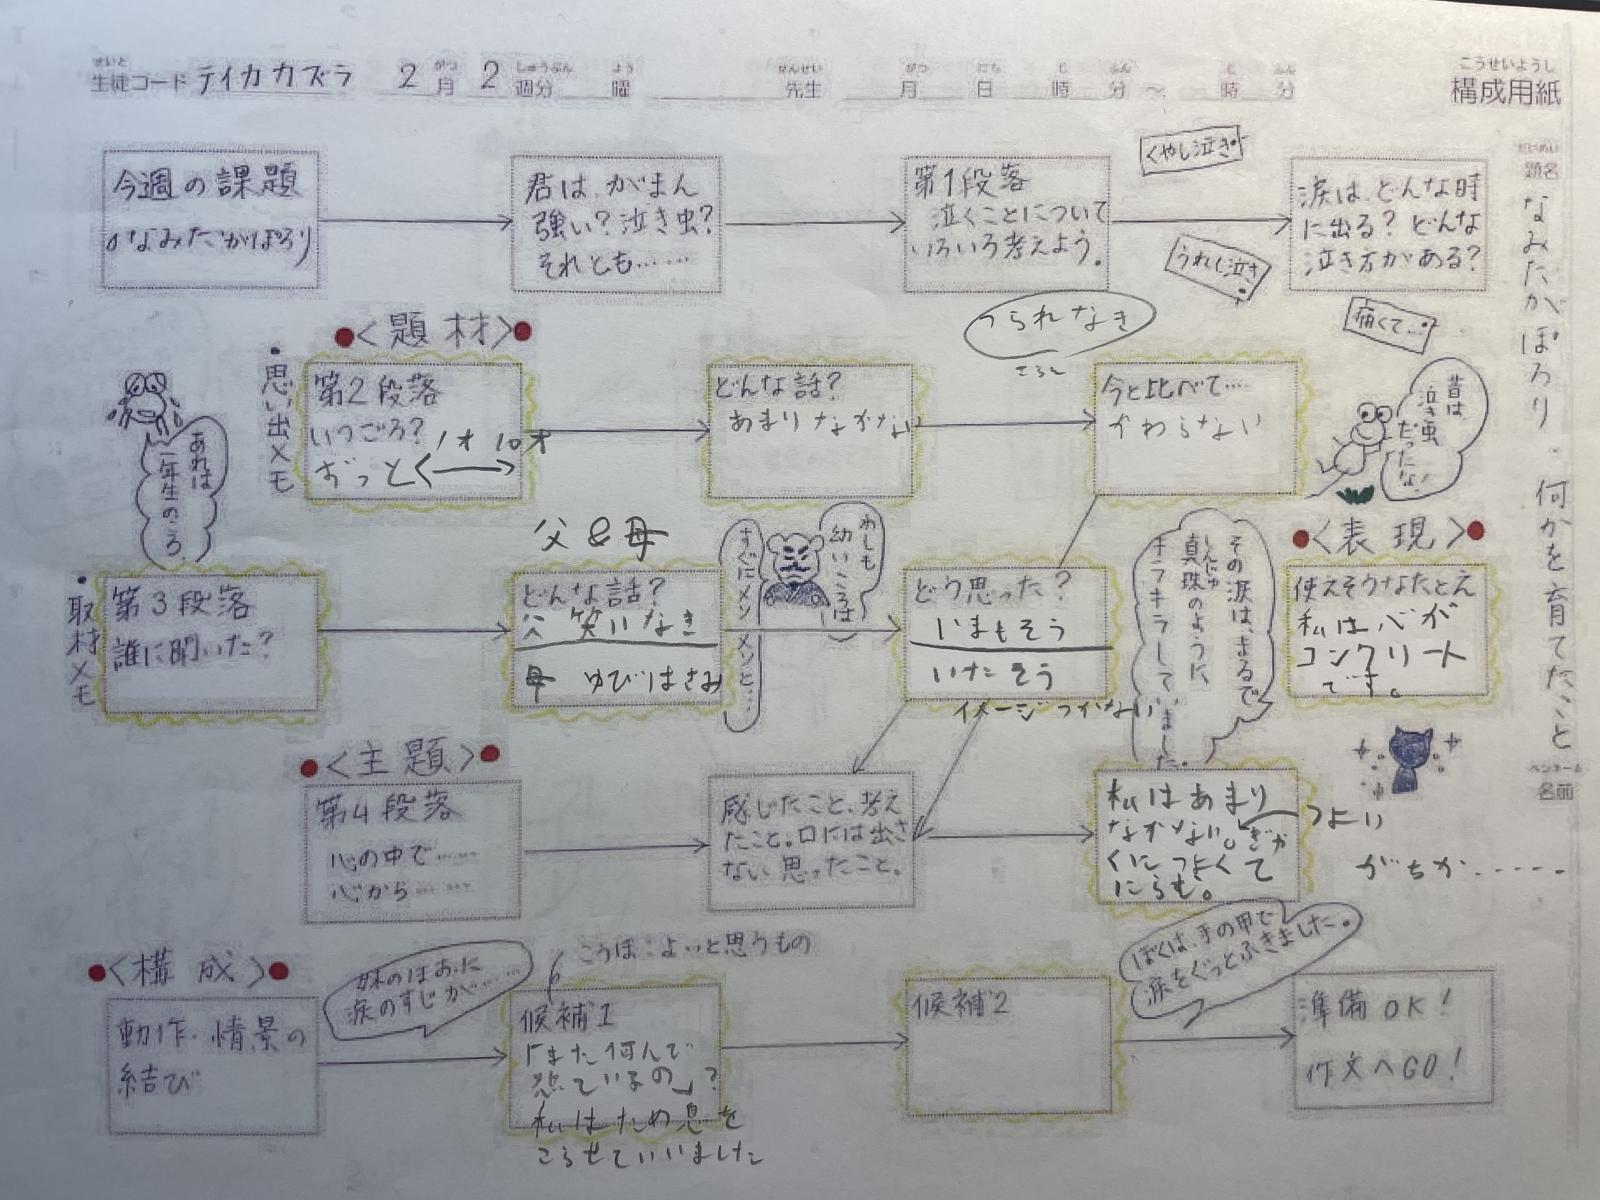 せいと
生徒コード テイカカズラ 2月 2週分 曜 先生 月 日 時 分 ~ 時 分
がつ しゅうぶん よう せんせい がつ にち じ ふん じ ふん
こうせいようし
構成用紙
だいめい
題名
なみだがぽろり・何かを育てたこと
ペンネーム
名前
今週の課題
なみだがぽろり
君は、がまん
強い?泣き虫?
それとも……
第1段落
泣くことについて
いろいろ考えよう。
くやし泣き
うれし泣き
痛くて…
涙は、どんな時
に出る? どんな
泣き方がある?
つられなき
●<題材>●
・思い出メモ
第2段落
いつごろ?
ずっと
1才 10才
どんな話?
あまりなかない
今と比べて……
かわらない
昔は
泣き虫
だったな!
あれは
一年生のころ
・取材メモ
第3段落
誰に聞いた?
父&母
どんな話?
父 笑いなき
母 ゆびはさみ
わしも
幼いころは
すぐにメソメソと…
どう思った?
いまもそう
いたそう
イメージつかない
その涙は、まるで
しんじゅ
真珠のように、
キラキラしていました。
●<表現>●
使えそうなたとえ
私は心が
コンクリート
です。
●<主題>●
第4段落
心の中で……
心から……
感じたこと、考え
たこと。口には出さ
ない思ったこと。
私はあまり
なかない。ぎゃ
くにつよくて
にらも。
つよい
がちか.....
●<構成>●
動作・情景の
結び
妹のほおに
涙のすじが……
こうほ:よいと思うもの
候補1
「また何んで
怒ているの」?
私はため息を
こらせていいました
候補2
ぼくは、手の甲で
涙をぐっとふきました。
準備OK!
作文へGO!